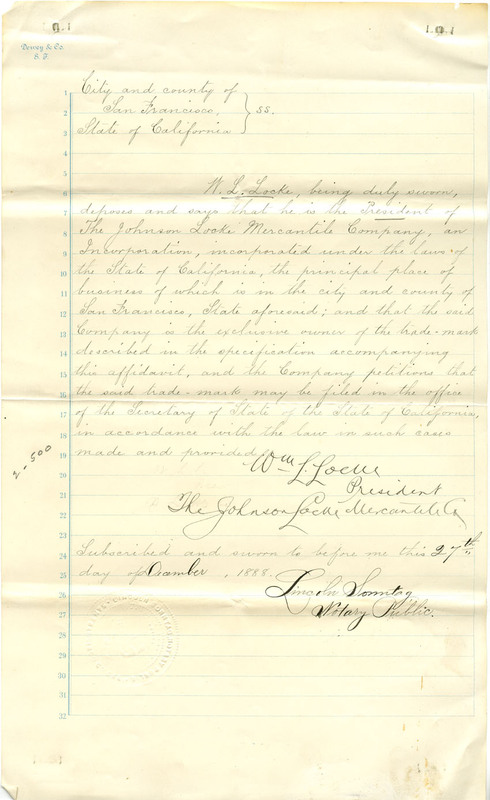 Dewey & Co.
S. F.
City and county of
San Francisco, } ss.
State of California
W. L. Locke, being duly sworn,
deposes and says that he is the President of
The Johnson Locke Mercantile Company, an
Incorporation, incorporated under the laws of
the State of California, the principal place of
business of which is in the city and county of
San Francisco, State aforesaid; and that the said
Company is the exclusive owner of the trade-mark
described in the specification accompanying
this affidavit, and the Company petitions that
the said trade-mark may be filed in the office
of the Secretary of State of the State of California,
in accordance with the law in such cases
made and provided.
Wm L. Locke
President
The Johnson Locke Mercantile Co
Subscribed and sworn to before me this 27th
day of December, 1888.
Lincoln Sonntag
Notary Public.
2.500
1
2
3
4
5
6
7
8
9
10
11
12
13
14
15
16
17
18
19
20
21
22
23
24
25
26
27
28
29
30
31
32